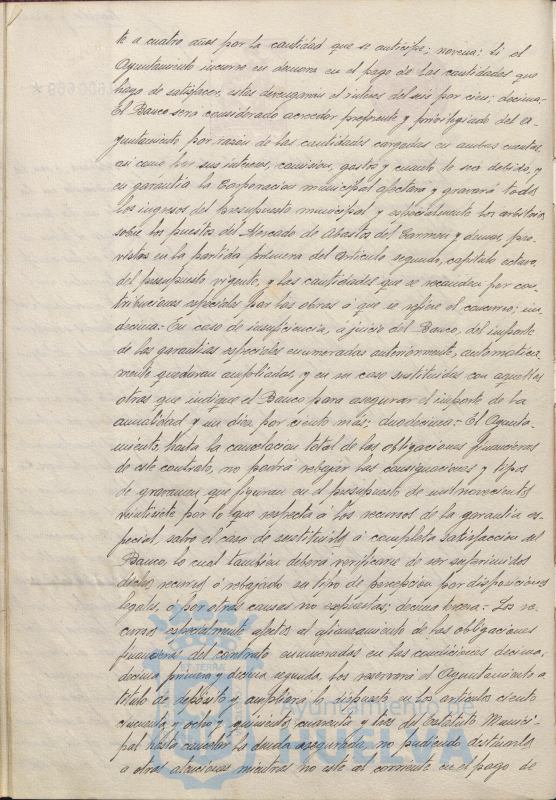 te a cuatro años por la cantidad que se anticipe; novena: Si el
Ayuntamiento incurre en demora en el pago de las cantidades que
haya de satisfacer, estas devengarán el interes del seis por cien; decima=
El Banco será considerado acreedor preferente y privilegiado del A-
yuntamiento por razón de las cantidades cargadas en ambas cuentas
asi como por sus intereses, comisión, gastos y cuanto le sea debido, y
en garantía la Corporación municipal afectará y gravará todos
los ingresos del presupuesto municipal y especialmente los arbitrios
sobre los puestos del Mercado de Abastos del Carmen y demas, pre-
vistos en la partida primera del Artículo segundo, capítulo octavo
del presupuesto vigente, y las cantidades que se recauden por con-
tribuciones especiales por las obras á que se refiere el concurso; un-
decima= En caso de insuficiencia, á juicio del Banco, del importe
de las garantías especiales enumeradas anteriormente, automatica
mente quedaran ampliadas, y en su caso sustituidas con aquellas
otras que indique el Banco para asegurar el importe de la
anualidad y un diez por ciento más; duodecima= El Ayunta-
miento, hasta la cancelacion total de las obligaciones financieras
de este contrato, no podrá rebajar las consignaciones y tipos
de gravamen que figuran en el presupuesto de mil novecientos
veintisiete por lo que respecta á los recursos de la garantía es-
pecial, salvo el caso de sustituirlos á completa satisfacción del
Banco, lo cual tambien deberá verificarse de ser suprimidos
dichos recursos ó rebajado su tipo de percepción por disposiciones
legales, o por otras causas no expuestas; decima tercera= Los re-
cursos especialmente afectos al afianzamiento de las obligaciones
financieras del contrato enumerados en las condiciones decima,
decima primera y decima segunda, los reservará el Ayuntamiento a
título de depósito y ampliara lo dispuesto en los articulos ciento
cincuenta y ocho y quinientos cuarenta y tres del Estatuto Munici-
pal hasta cancelar la deuda asegurada, no pudiendo destinarlos
a otras atenciones mientras no esté al corriente en el pago de
ET TERRA
Ayuntamiento de
HUELVA